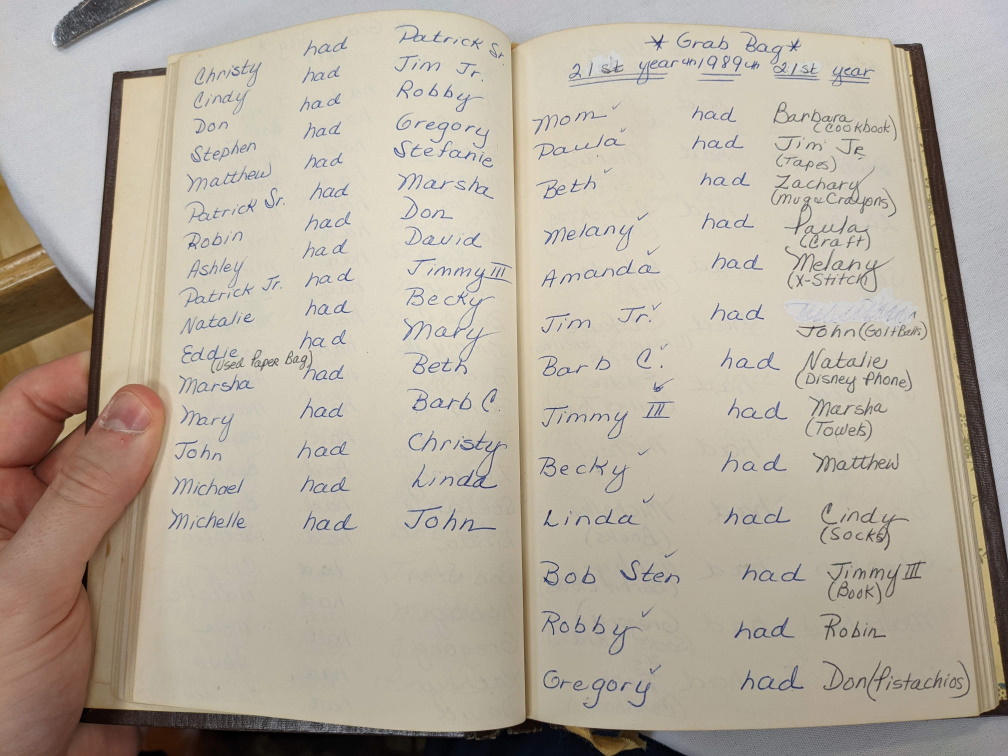 Christy had Patrick Sr.
Cindy had Jim Jr.
Don had Robby
Stephen had Gregory
Matthew had Stefanie
Patrick Sr. had Marsha
Robin had Don
Ashley had David
Patrick Jr. had Jimmy III
Natalie had Becky
Eddie had Mary
(Used Paper Bag)
Marsha had Beth
Mary had Barb C.
John had Christy
Michael had Linda
Michelle had John
* Grab Bag *
21st year " 1989 " 21st year
Mom ✓ had Barbara
(Cookbook)
Paula ✓ had Jim Jr.
(Tapes)
Beth ✓ had Zachary
(Mug & Crayons)
Melany ✓ had Paula
(Craft)
Amanda ✓ had Melany
(X-Stitch)
Jim Jr. ✓ had
John (Golf Balls)
Barb C. ✓ had Natalie
(Disney Phone)
Jimmy III ✓ had Marsha
(Towels)
Becky ✓ had Matthew
Linda ✓ had Cindy
(Socks)
Bob Sten ✓ had Jimmy III
(Book)
Robby ✓ had Robin
Gregory ✓ had Don (Pistachios)